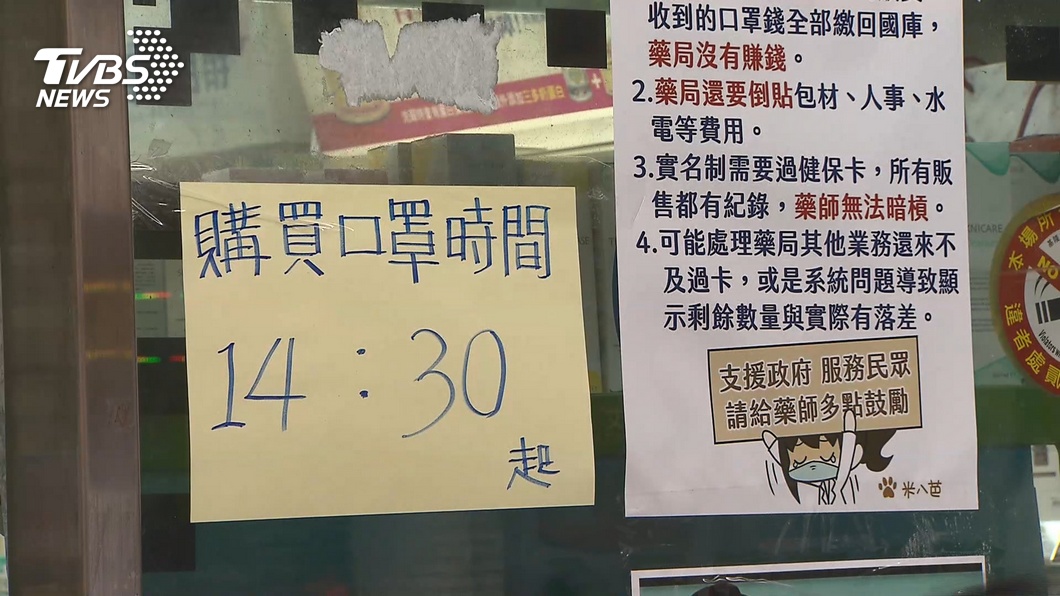 TVBS
NEWS
購買口罩時間
14:30
起
收到的口罩錢全部繳回國庫，
藥局沒有賺錢。
2.藥局還要倒貼包材、人事、水
電等費用。
3.實名制需要過健保卡，所有販
售都有紀錄，藥師無法暗槓。
4.可能處理藥局其他業務還來不
及過卡，或是系統問題導致顯
示剩餘數量與實際有落差。
支援政府 服務民眾
請給藥師多點鼓勵
米八芭
本場所
NO
違者處